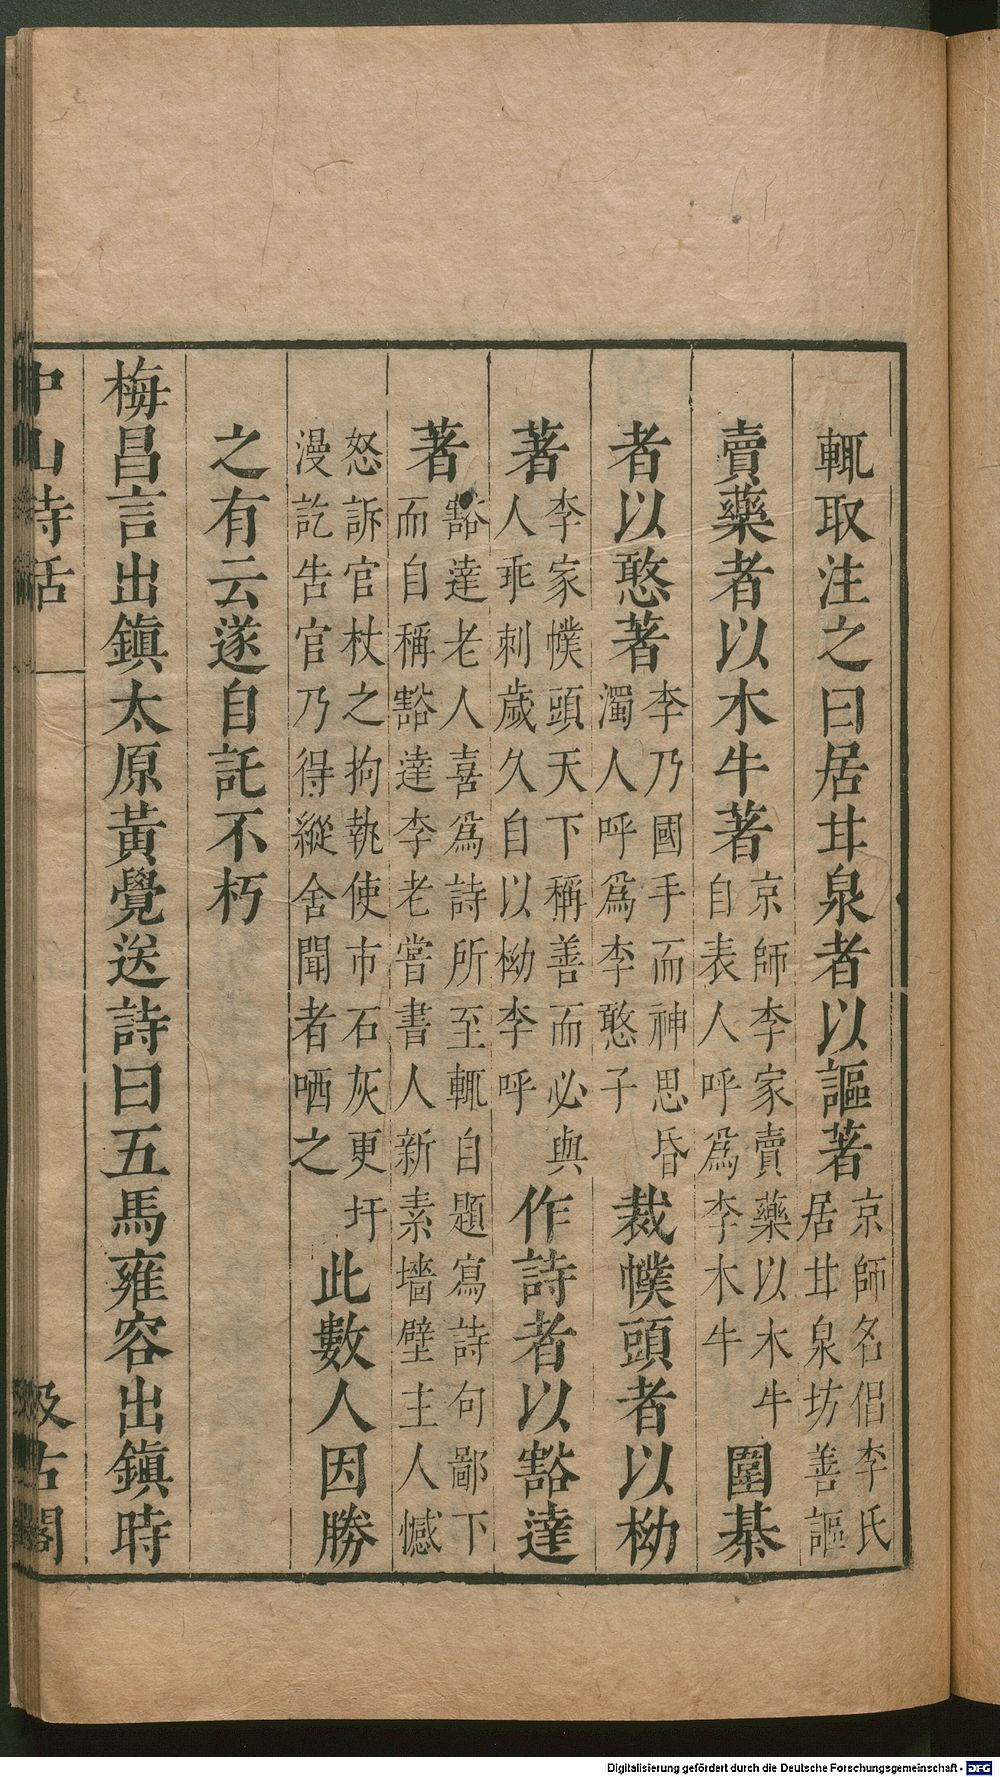 輒取注之曰居甘泉者以謳著京師名倡李氏居甘泉坊善謳
賣藥者以木牛著京師李家賣藥以木牛自表人呼爲李木牛圍棊
者以憨著李乃國手而神思昏濁人呼爲李憨子裁幞頭者以㭢
著李家幞頭天下稱善而必與人乖刺歲久自以㭢李呼作詩者以豁達
著豁達老人喜爲詩所至輒自題寫詩句鄙下而自稱豁達李老嘗書人新素墻壁主人憾
怒訴官杖之拘執使市石灰更圬漫訖告官乃得縱舍聞者哂之此數人因勝
之有云遂自託不朽
梅昌言出鎭太原黃覺送詩曰五馬雍容出鎭時
中山詩話
汲古閣
Digitalisierung gefördert durch die Deutsche Forschungsgemeinschaft - DFG